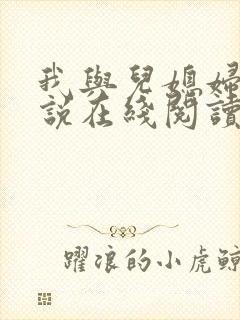 我與兒媳婦
說在綫閱讀
躍浪的小虎鯨